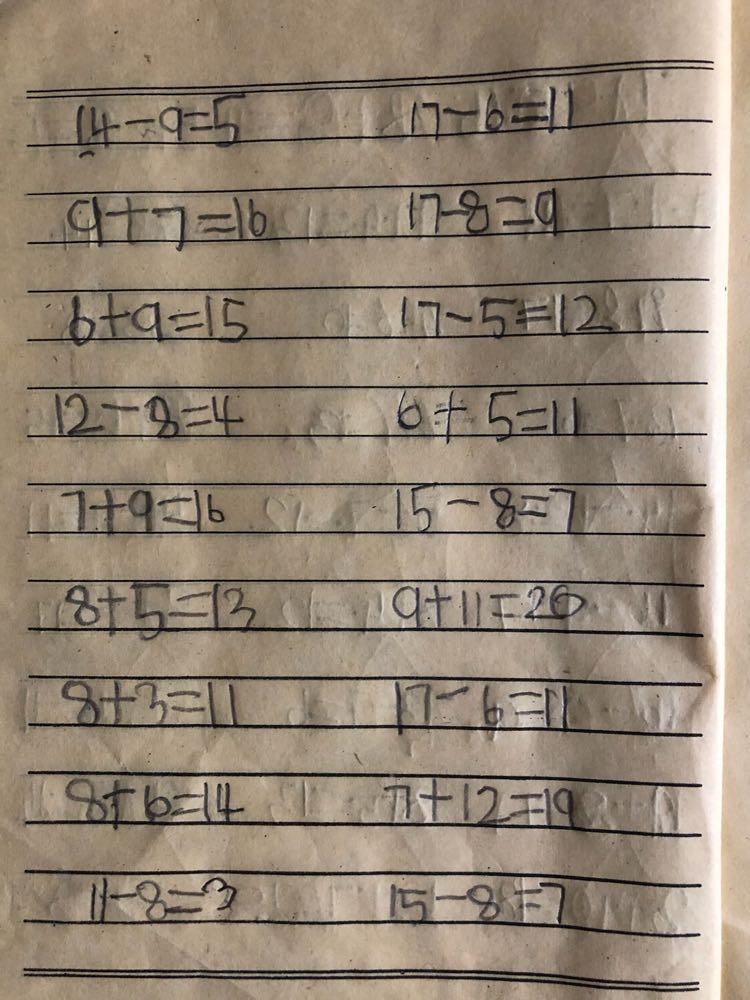 14-9=5 17-6=11
9+7=16 17-8=9
6+9=15 17-5=12
12-8=4 6+5=11
7+9=16 15-8=7
8+5=13 9+11=20
8+3=11 17-6=11
8+6=14 7+12=19
11-8=3 15-8=7